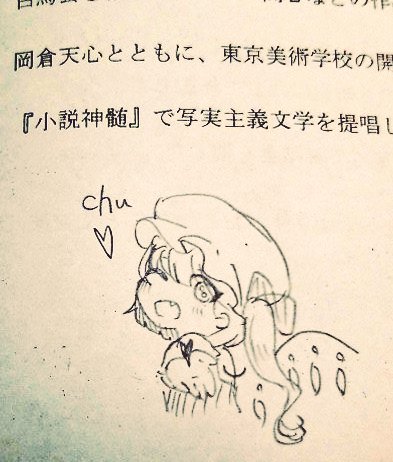 岡倉天心とともに、東京美術学校の開
『小説神髄』で写実主義文学を提唱し
chu